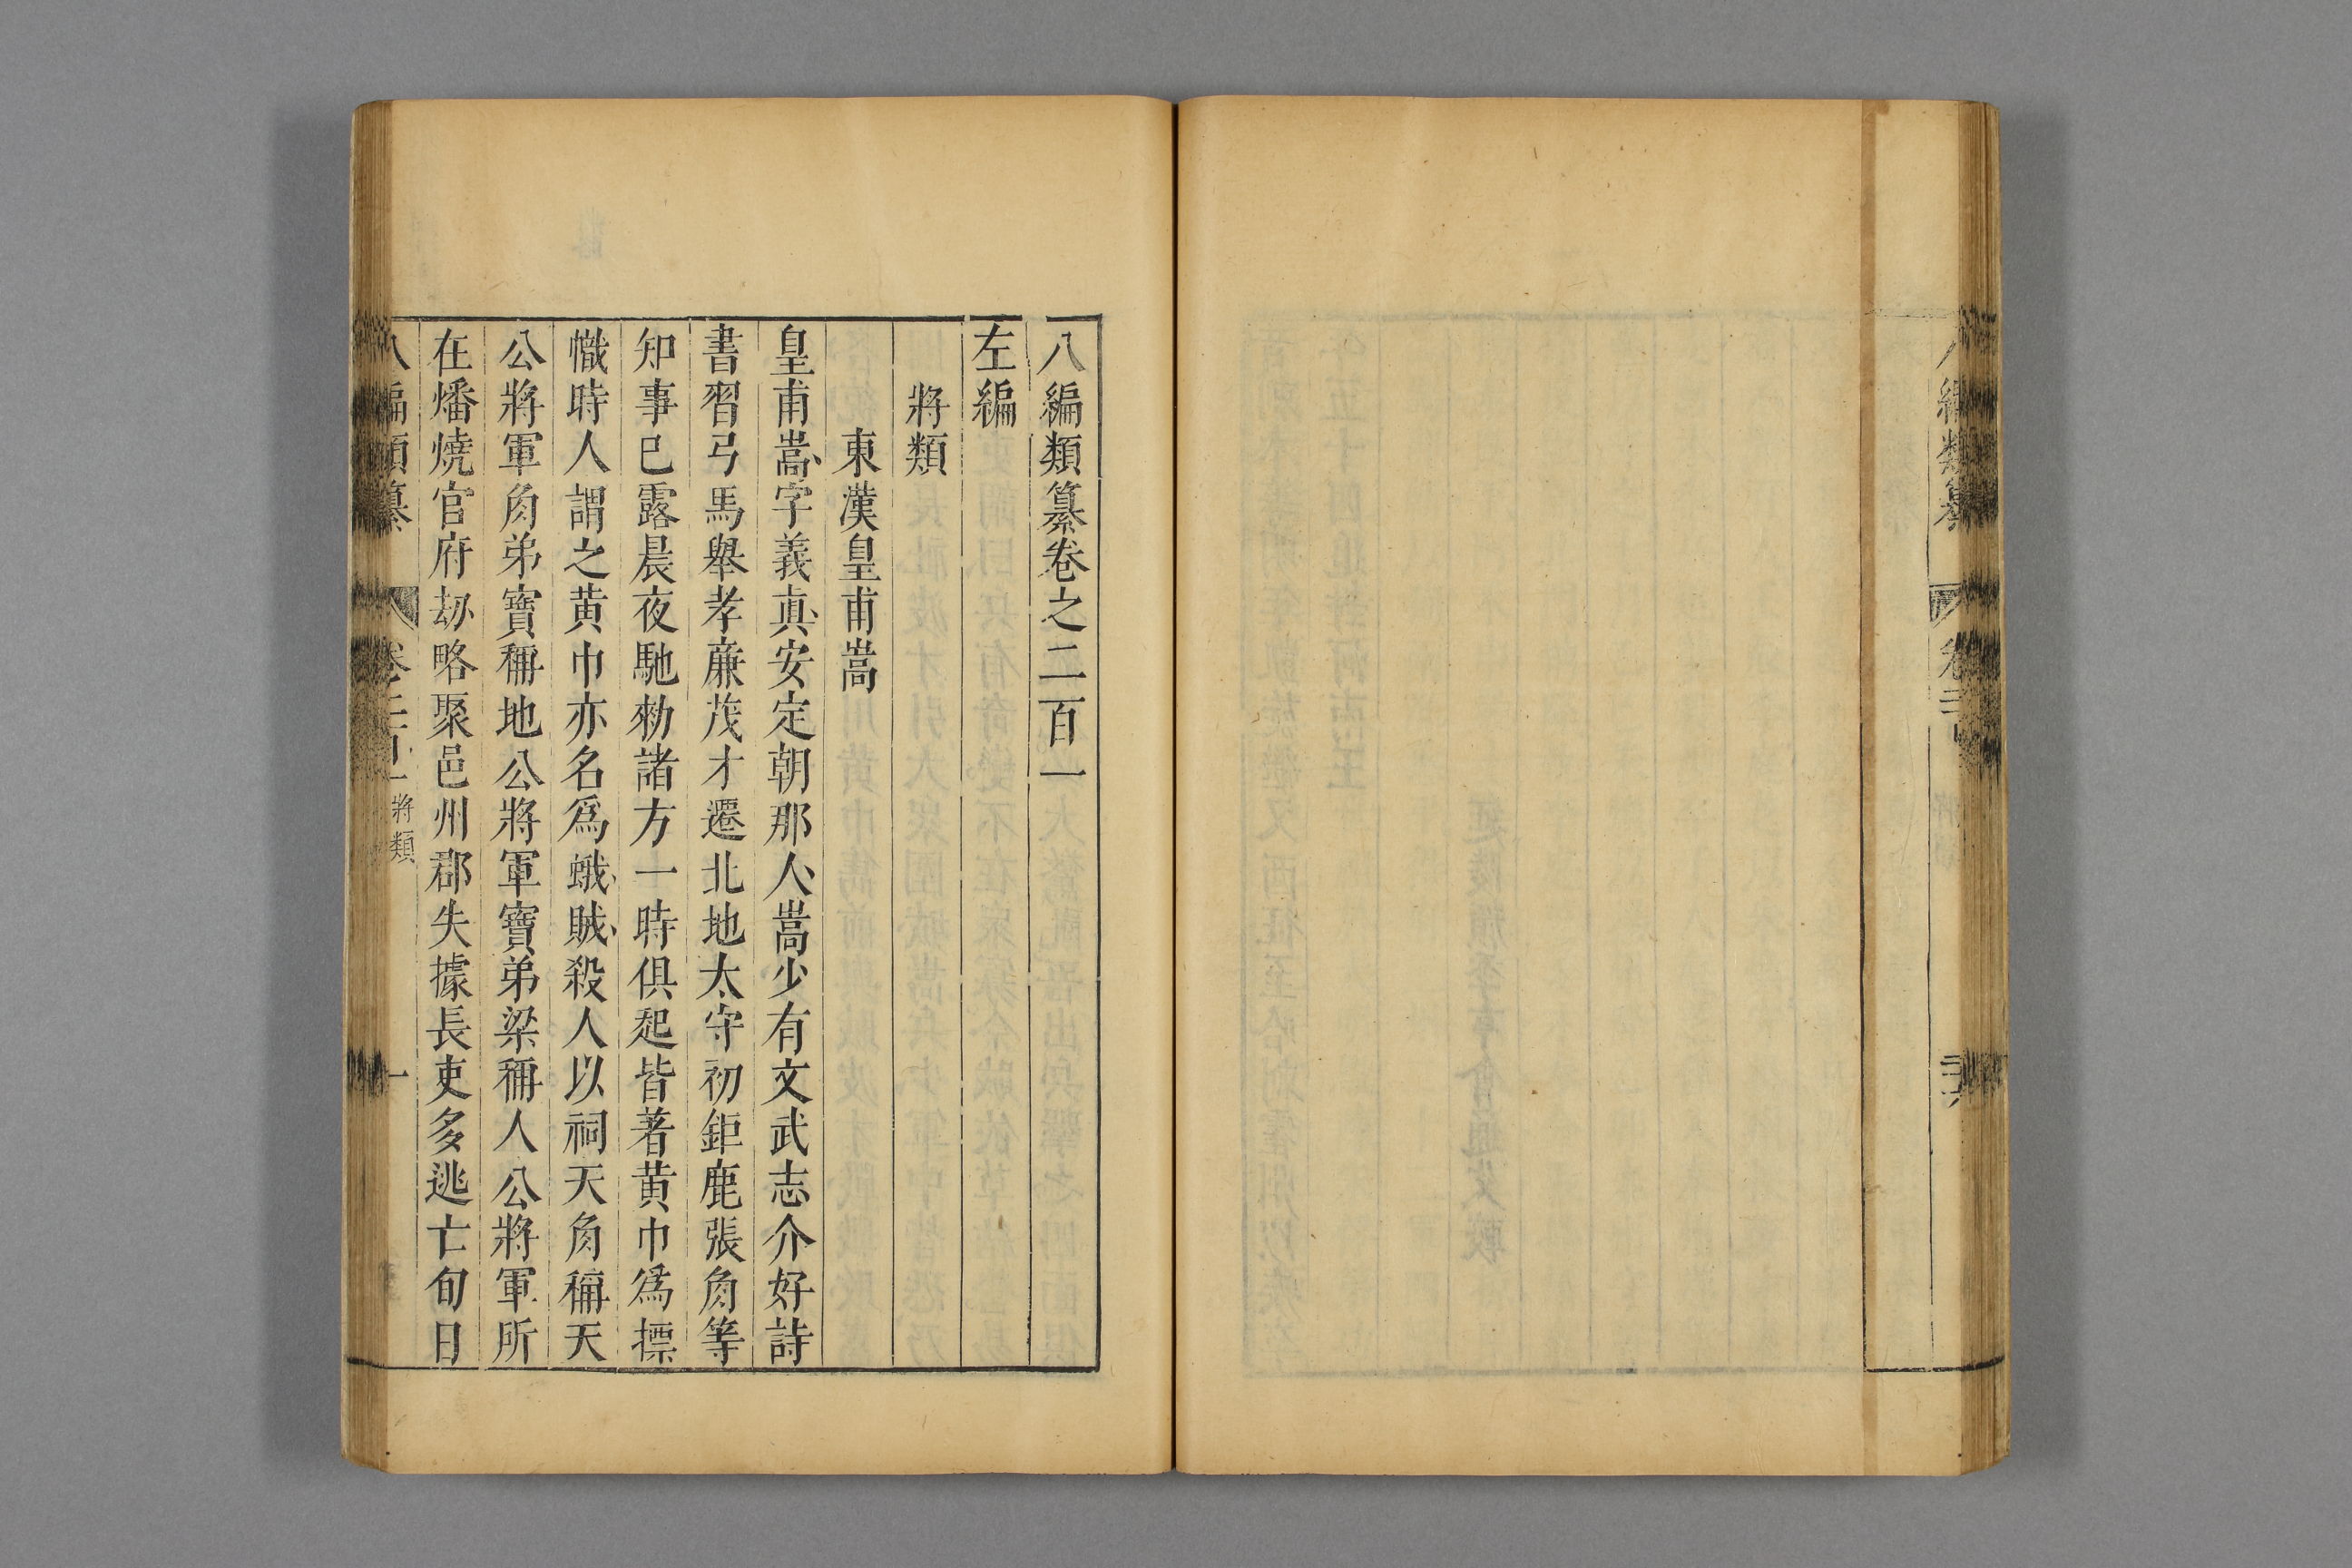 八編類纂卷之二百一
左編
將類
東漢皇甫嵩
皇甫嵩字義真安定朝那人嵩少有文武志介好詩
書習弓馬舉孝廉茂才遷北地太守初鉅鹿張角等
知事已露晨夜馳勑諸方一時俱起皆著黄巾爲摽
幟時人謂之黄巾亦名爲蛾賊殺人以祠天角稱天
公將軍角弟寶稱地公將軍寶弟梁稱人公將軍所
在燔燒官府劫略聚邑州郡失據長吏多逃亡旬日
八編類纂 卷二百一 將類 一